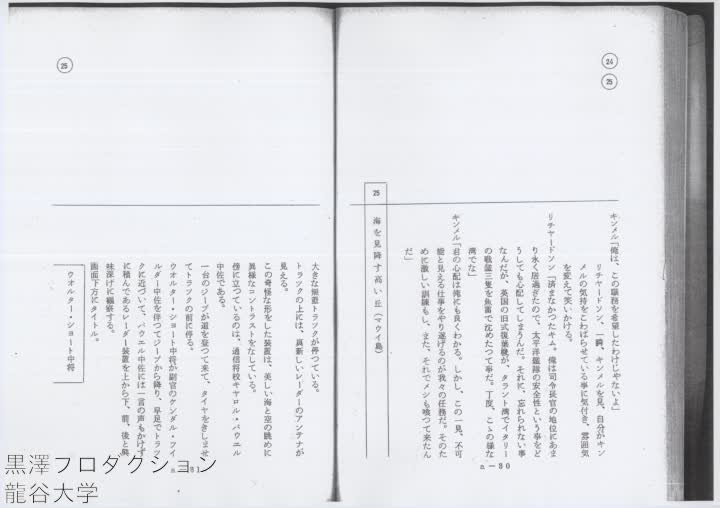 24
25
キンメル「俺は、この職務を希望したわけじやないよ」
リチヤードソン、一瞬、キンメルを見、自分がキン
メルの気持をこわばらせている事に気付き、雰囲気
を変えて笑いかける。
リチヤードソン「済まなかつたキム。俺は司令長官の地位にあま
り永く居過ぎたので、太平洋艦隊の安全性という事をど
うしても心配してしまうんだ。それに、忘れられない事
なんだが、英国の旧式復葉機が、タラント湾でイタリー
の戦艦三隻を魚雷で沈めたつて事だ。丁度、こゝの様な
湾でな」
キンメル「君の心配は俺にも良くわかる。しかし、この一見、不可
能と見える仕事をやり遂げるのが我々の任務だ。そのた
めに激しい訓練もし、また、それでメシも喰つて来たん
だ」
25 海を見降す高い丘(マウイ島)
a－80
25
大きな無蓋トラツクが停つている。
トラツクの上には、真新しいレーダーのアンテナが
見える。
この奇怪な形をした装置は、美しい海と空の眺めに
異様なコントラストをなしている。
傍に立つているのは、通信将校キヤロル・パウエル
中佐である。
一台のジープが道を登つて来て、タイヤをきしませ
てトラツクの前に停る。
ウオルター・シヨート中将が副官のケンダル・フイ
ルダー中佐を伴つてジープから降り、早足でトラツ
クに近づいて、パウエル中佐には一言の声もかけず
に積んであるレーダー装置を上から下、前、後と興
味深げに観察する。
画面下方にタイトル。
ウオルター・シヨート中将
a－81
黒澤プロダクション
龍谷大学